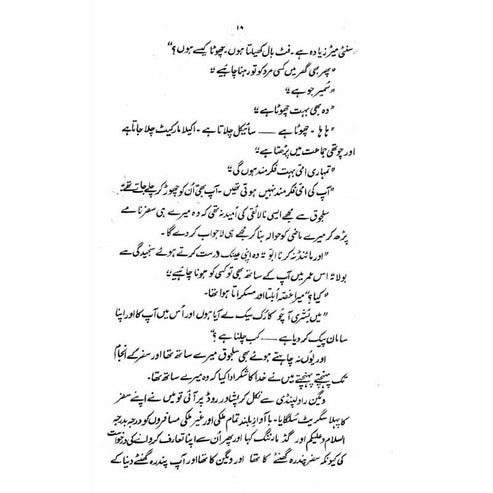 ۱۸
سنٹی میٹر زیادہ ہے۔ فٹ بال کھیلتا ہوں۔ چھوٹا کیسے ہوں؟"
"پھر بھی گھر میں کسی مرد کو تو رہنا چاہیے"
"سُمیر جو ہے"
"وہ بھی بہت چھوٹا ہے"
"ہا ہا۔ چھوٹا ہے —— سائیکل چلاتا ہے۔ اکیلا مارکیٹ چلا جاتا ہے
اور چوتھی جماعت میں پڑھتا ہے"
"تمہاری امّی بہت فکر مند ہوں گی"
"آپ کی امّی فکر مند نہیں ہوتی تھیں۔ آپ بھی اُن کو چھوڑ کر چلے جاتے تھے"
سلجوق سے مجھے ایسی نالائقی کی اُمید نہ تھی کہ وہ میرے ہی سفر نامے
پڑھ کر میرے ماضی کو حوالہ بنا کر مجھے ہی لاجواب کر دے گا۔
"اور مائنڈ نہ کرنا ابّو" وہ اپنی عینک درست کرتے ہوئے سنجیدگی سے
بولا" اس عمر میں آپ کے ساتھ بھی تو کسی کو ہونا چاہیے"
"کیا؟" میرا غصّہ اُبلتا اور مسکراتا ہوا تھا۔
"میں سٹری آپ کا رُک سیک لے آیا ہوں اور اُس میں آپ کا اور اپنا
سامان پیک کر دیا ہے —— کب چلنا ہے؟"
اور یوں نہ چاہتے ہوئے بھی سلجوق میرے ساتھ تھا اور سفر کے انجام
تک پہنچتے پہنچتے میں نے خدا کا شکر ادا کیا کہ وہ میرے ساتھ تھا۔
ویگن راولپنڈی سے نکل کر پشاور روڈ پر آئی تو میں نے اپنے سفر
کا پہلا سگریٹ سُلگایا۔ با آوازِ بلند تمام ملکی اور غیر ملکی مسافروں کو درجہ بدرجہ
اسلام وعلیکم اور گڈ مارننگ کہا اور پھر اُن سے اپنا تعارف کروانے کی درخواست
کی کیونکہ سفر پندرہ گھنٹے کا تھا اور ویگن کا تھا اور آپ پندرہ گھنٹے دنیا کے